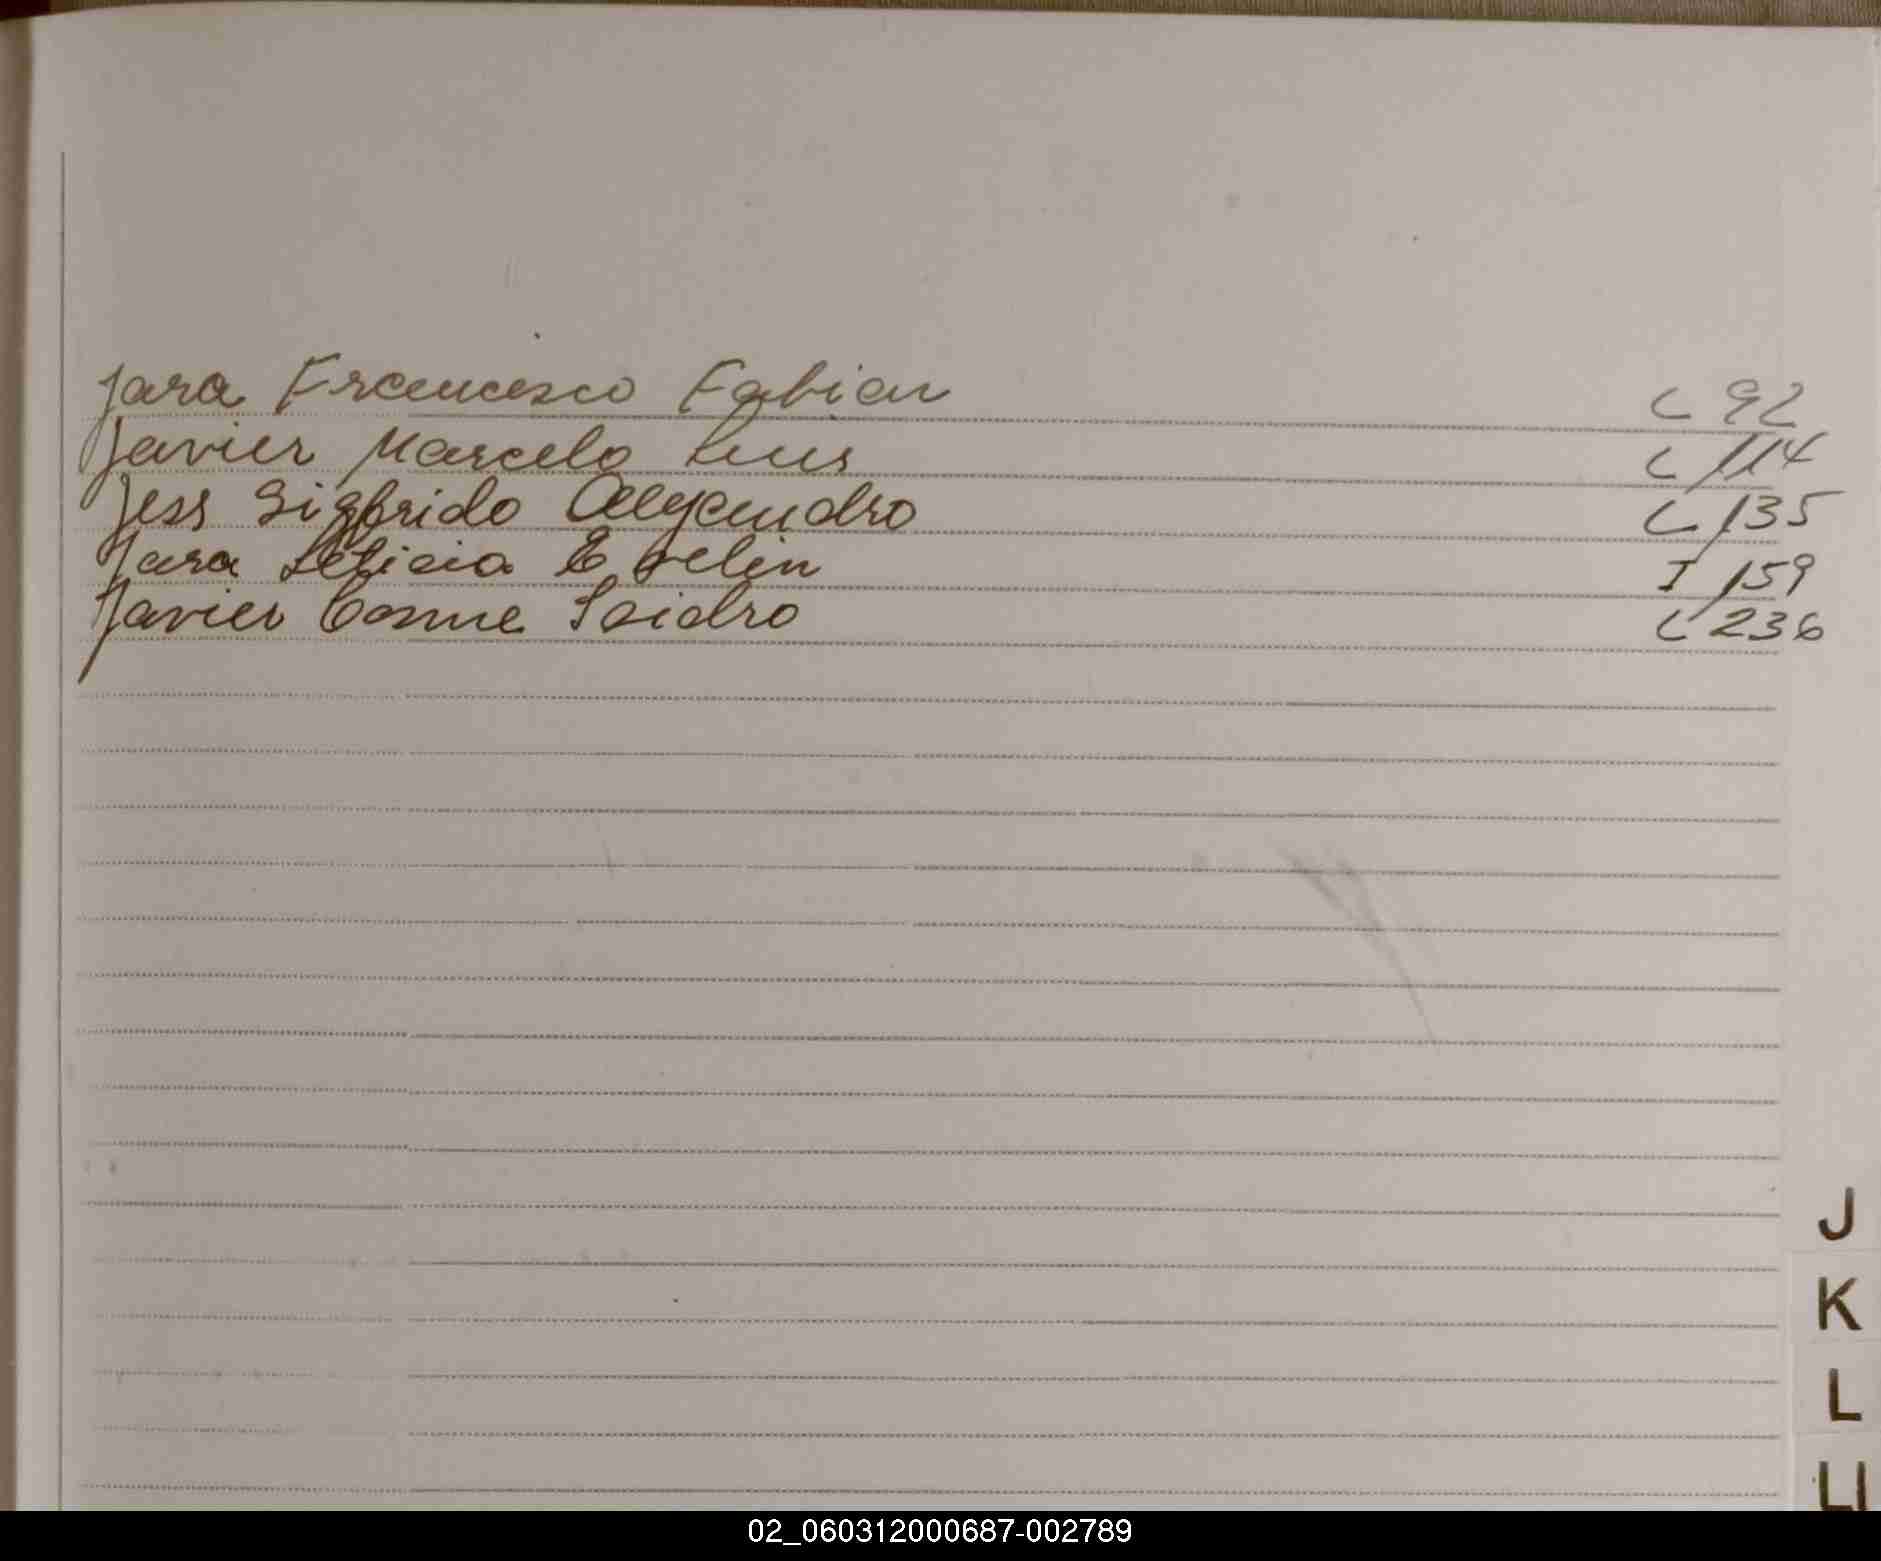 Jara Francesco Fabian C 92
Javier Marcelo Luis C 114
Jess Sigfrido Alejandro C 135
Jara Leticia Evelin I 159
Javier Cosme Isidro C 236
J
K
L
LL
02_060312000687-002789